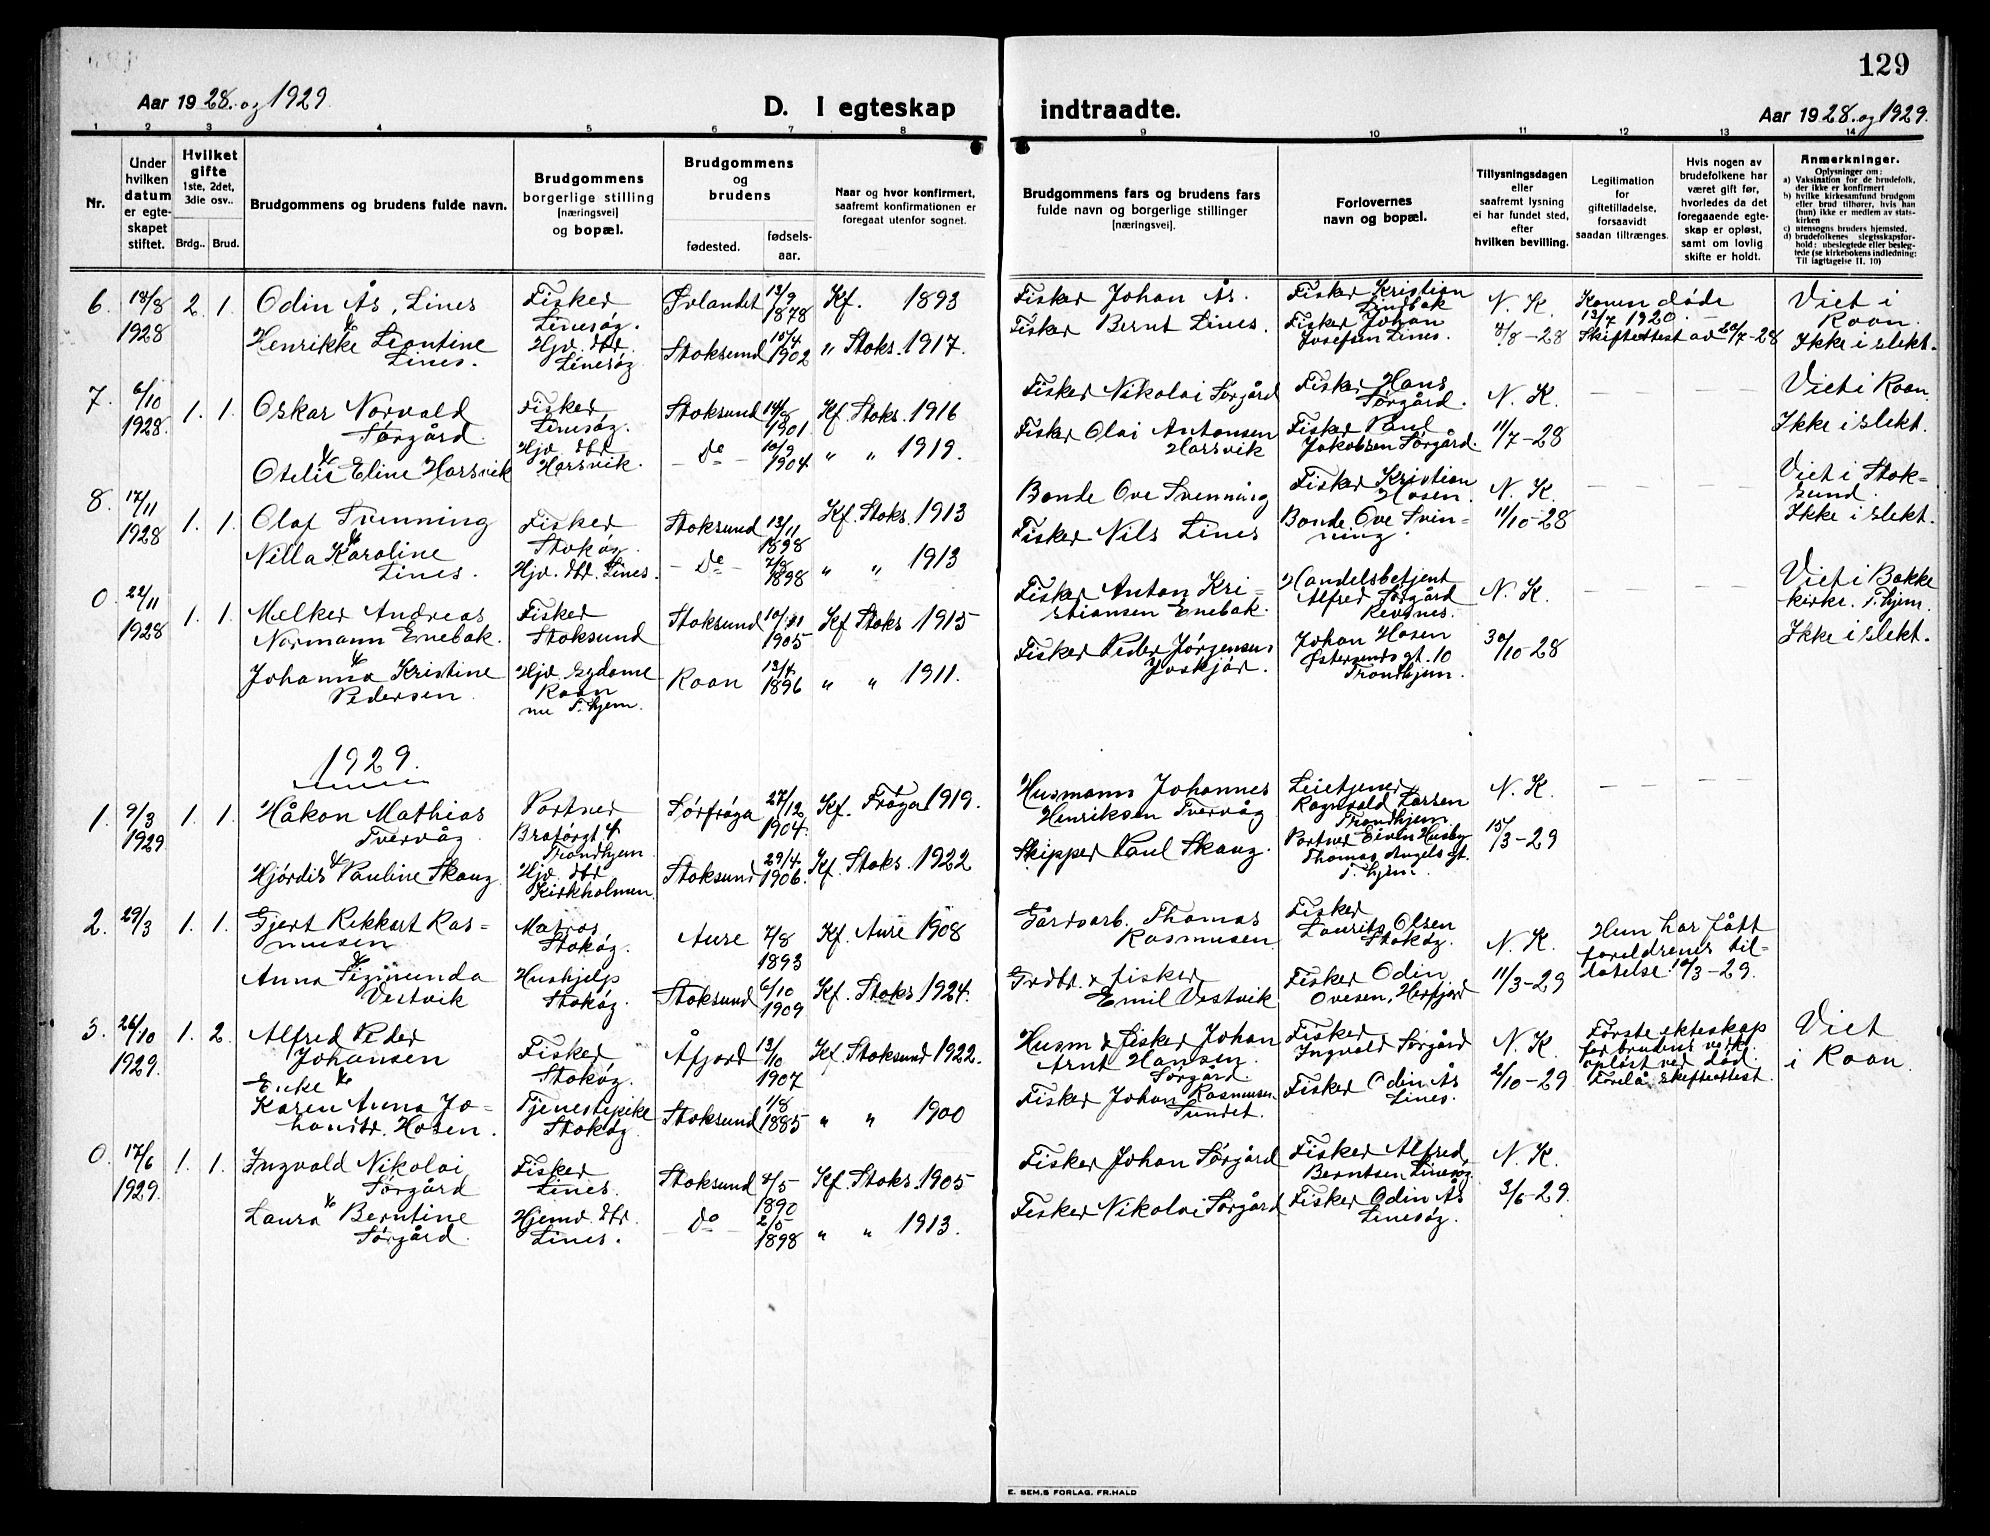 129
Aar 1928. og 1929.
D. I egteskap
indtraadte.
Aar 1928. og 1929.
1 2 3 4 5 6 7 8 9 10 11 12 13 14
Nr.
Under hvilken datum er egteskapet stiftet.
Hvilket gifte
1ste, 2det, 3die osv..
Brdg.. Brud.
Brudgommens og brudens fulde navn.
Brudgommens borgerlige stilling [næringsvei] og bopæl.
Brudgommens og brudens
fødested. fødsels-aar.
Naar og hvor konfirmert, saafremt konfirmationen er foregaat utenfor sognet.
Brudgommens fars og brudens fars fulde navn og borgerlige stillinger [næringsvei].
Forlovernes navn og bopæl.
Tillysningsdagen eller saafremt lysning ei har fundet sted, efter hvilken bevilling.
Legitimation for giftetilladelse, forsaavidt saadan tiltrænges.
Hvis nogen av brudefolkene har været gift før, hvorledes da det foregaaende egteskap er opløst, samt om lovlig skifte er holdt.
Anmerkninger.
Oplysninger om:
a) Vaksination for de brudefolk, der ikke er konfirmert
b) hvilke kirkesamfund brudgom eller brud tilhører, hvis han (hun) ikke er medlem av statskirken
c) utensogns bruders hjemsted.
d) brudefolkenes slegtsskapsforhold: ubeslegtede eller beslegtede (se kirkebokens indledning: Til iagttagelse II. 10)
6. 18/8 1928 2. 1. Odin Ås, Lines Fisker Linesøy. Ørlandet 13/9 1878 Kf. 1893 Fisker Johan Ås. Fisker Kristian Lindbak N. K. Konen døde 13/7 1920. Viet i Roan.
& Henrikke Leontine Lines. Hjv. dtr. Linesøy Stoksund 15/4 1902 " Stoks. 1917. Fisker Bernt Lines. Fisker Johan Josefsen Lines. 4/8-28 Skifteattest av 20/7-28 Ikke i slekt.
7. 6/10 1928. 1. 1. Oskar Norvald Sørgård Fisker Linesøy. Stoksund 14/8 1901 Kf. Stoks. 1916 Fisker Nikolai Sørgård Fisker Hans Sørgård. N. K. — — Viet i Roan
& Otelie Eline Harsvik Hjv. dtr Harsvik. — Do — 10/9 1904 " " 1919. Fisker Olai Antonsen Harsvik Fisker Paul Jakobsen Sørgård. 11/7-28 Ikke i slekt.
8. 17/11 1928 1. 1. Olaf Svenning Fisker Stokøy. Stoksund 13/11 1898 Kf. Stoks. 1913 Bonde Ove Svenning Fisker Kristian Hosen. N. K. — — Viet i Stoksund.
& Nilla Karoline Lines. Hjv. dtr. Lines. — Do — 7/8 1898 " " 1913 Fisker Nils Lines Bonde Ove Svenning. 11/10-28 Ikke i slekt.
0. 22/11 1928 1. 1. Melker Andreas Normann Enebak. Fisker Stoksund Stoksund 10/11 1905 Kf Stoks. 1915 Fisker Anton Kristiansen Enebak. Handelsbetjent Alfred Sørgård Revsnes. N. K. — — Viet i Bakke kirke. T.hjem.
& Johanna Kristine Pedersen Hjv. Gydame Roan nu T.hjem. Roan 13/4 1896 " " 1911. Fisker Peder Jørgensen, Johan Hosen Østersunds gt. 10 Trondhjem. 30/10-28 Ikke i slekt.
1929.
1. 9/3 1929 1. 1. Håkon Mathias Tvervåg Portner Bratørgt 4 Trondhjem Sørfrøya 27/12 1904. Kf. Frøya 1919. Husmann Johannes Henriksen Tvervåg Leietjener Ragnvald Larsen Trondhjem N. K. — —
& Hjørdis Pauline Skaug Hjv. dtr Kirkholmen Stoksund 29/4 1906. Kf. Stoks. 1922 Skipper Paul Skaug. Portner Eivin Husby Thomas Angels gt. T.hjem. 15/3-29
2. 29/3 1. 1. Gjert Rikkart Rasmusen Matros Stokøy. Aure 7/8 1893 Kf. Aure 1908 Gårdsarb. Thomas Rasmusen Fisker Laurits Olsen Stokøy. N. K. Hun har fått foreldrenes tillatelse 10/3-29.
& Anna Sigmunda Vestvik Hushjelp Stokøy. Stoksund 6/10 1909 Kf. Stoks. 1924. Grdbr. & fisker Emil Vestvik Fisker Odin Ovesen, Herfjord 11/3-29
3. 26/10 1929. 1. 2. Alfred Peder Johansen Fisker Stokøy. Åfjord 13/10 1907 Kf. Stoksund 1922. Husm & Fisker Johan Arnt Hansen Sørgård. Fisker Ingvald Sørgård N. K. Første ekteskap for brudens vedk. opløst ved død. Forelå skifteattest. Viet i Roan.
& Enke Karen Anna Johansdtr. Hosen. Tjenestepike Stokøy Stoksund 1/8 1885 " " 1900 Fisker Johan Rasmusen Sundet. Fisker Odin Ås Lines. 2/10-29
0. 17/6 1929. 1. 1. Ingvald Nikolai Sørgård Fisker Lines. Stoksund 4/5 1890 Kf Stoks. 1905 Fisker Johan Sørgård Fisker Alfred Berntsen Linesøy. N. K.
& Laura Berntine Sørgård. Hjemv. dtr. Lines. — Do — 2/5 1898 " " 1913. Fisker Nikolai Sørgård Fisker Odin Ås Linesøy. 3/6-29.
E. SEM.S FORLAG, FR.HALD